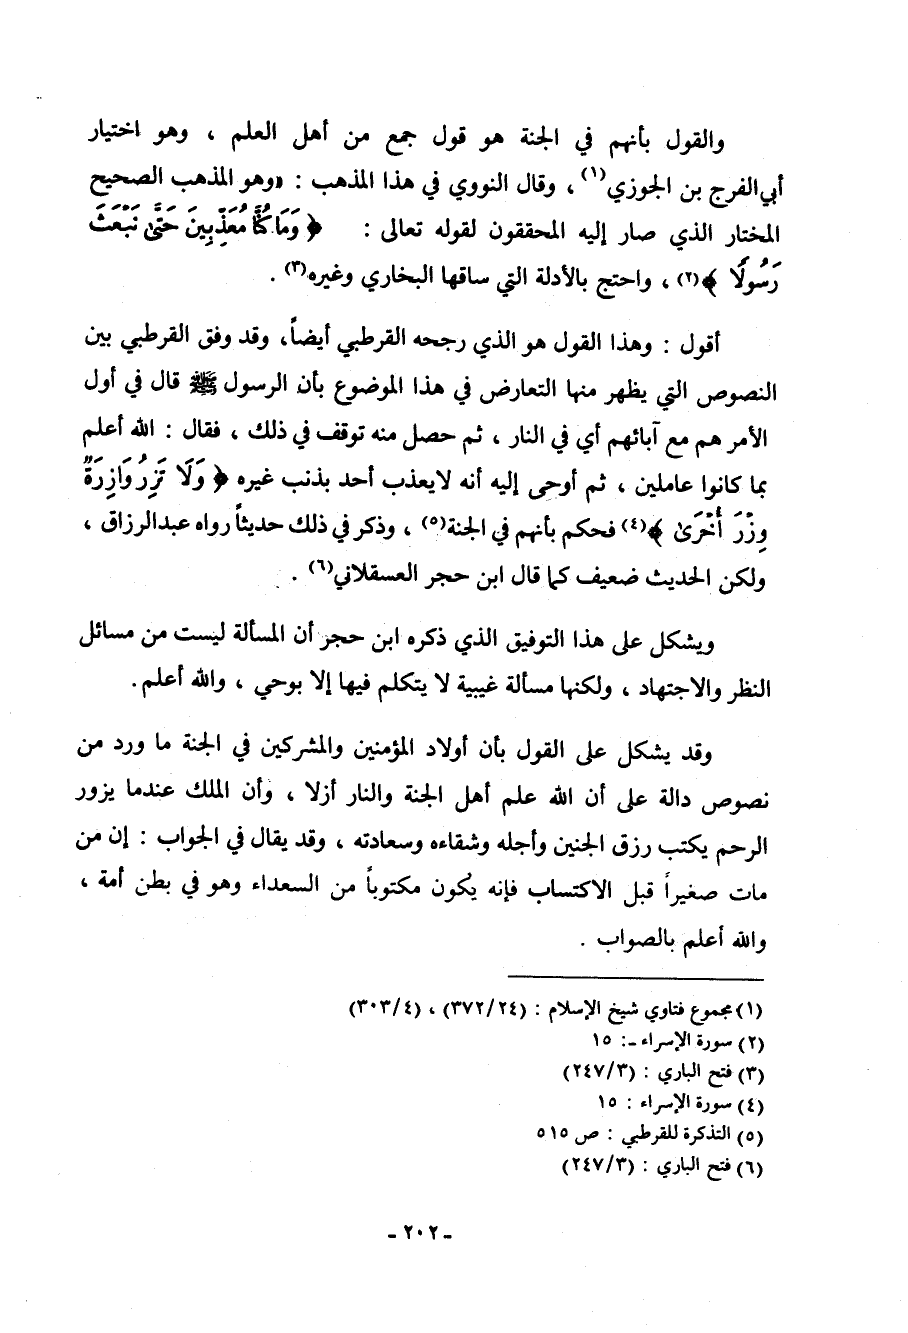 والقول بأنهم في الجنة هو قول جمع من أهل العلم ، وهو اختيار
أبي الفرج بن الجوزي(١) ، وقال النووي في هذا المذهب : «وهو المذهب الصحيح
المختار الذي صار إليه المحققون لقوله تعالى : ﴿ وَمَا كُنَّا مُعَذِّبِينَ حَتَّىٰ نَبْعَثَ
رَسُولًا ﴾(٢) ، واحتج بالأدلة التي ساقها البخاري وغيره(٣) .
أقول : وهذا القول هو الذي رجحه القرطبي أيضاً، وقد وفق القرطبي بين
النصوص التي يظهر منها التعارض في هذا الموضوع بأن الرسول ﷺ قال في أول
الأمر هم مع آبائهم أي في النار ، ثم حصل منه توقف في ذلك ، فقال : الله أعلم
بما كانوا عاملين ، ثم أوحى إليه أنه لايعذب أحد بذنب غيره ﴿ وَلَا تَزِرُ وَازِرَةٌ
وِزْرَ أُخْرَىٰ ﴾(٤) فحكم بأنهم في الجنة(٥) ، وذكر في ذلك حديثاً رواه عبدالرزاق ،
ولكن الحديث ضعيف كما قال ابن حجر العسقلاني(٦) .
ويشكل على هذا التوفيق الذي ذكره ابن حجر أن المسألة ليست من مسائل
النظر والاجتهاد ، ولكنها مسألة غيبية لا يتكلم فيها إلا بوحي ، والله أعلم.
وقد يشكل على القول بأن أولاد المؤمنين والمشركين في الجنة ما ورد من
نصوص دالة على أن الله علم أهل الجنة والنار أزلا ، وأن الملك عندما يزور
الرحم يكتب رزق الجنين وأجله وشقاءه وسعادته ، وقد يقال في الجواب : إن من
مات صغيراً قبل الاكتساب فإنه يكون مكتوباً من السعداء وهو في بطن أمة ،
والله أعلم بالصواب .
(١) مجموع فتاوي شيخ الإسلام : (٣٧٢/٢٤) ، (٣٠٣/٤)
(٢) سورة الإسراء -: ١٥
(٣) فتح الباري : (٢٤٧/٣)
(٤) سورة الإسراء : ١٥
(٥) التذكرة للقرطبي : ص ٥١٥
(٦) فتح الباري : (٢٤٧/٣)
- ٢٠٢ -